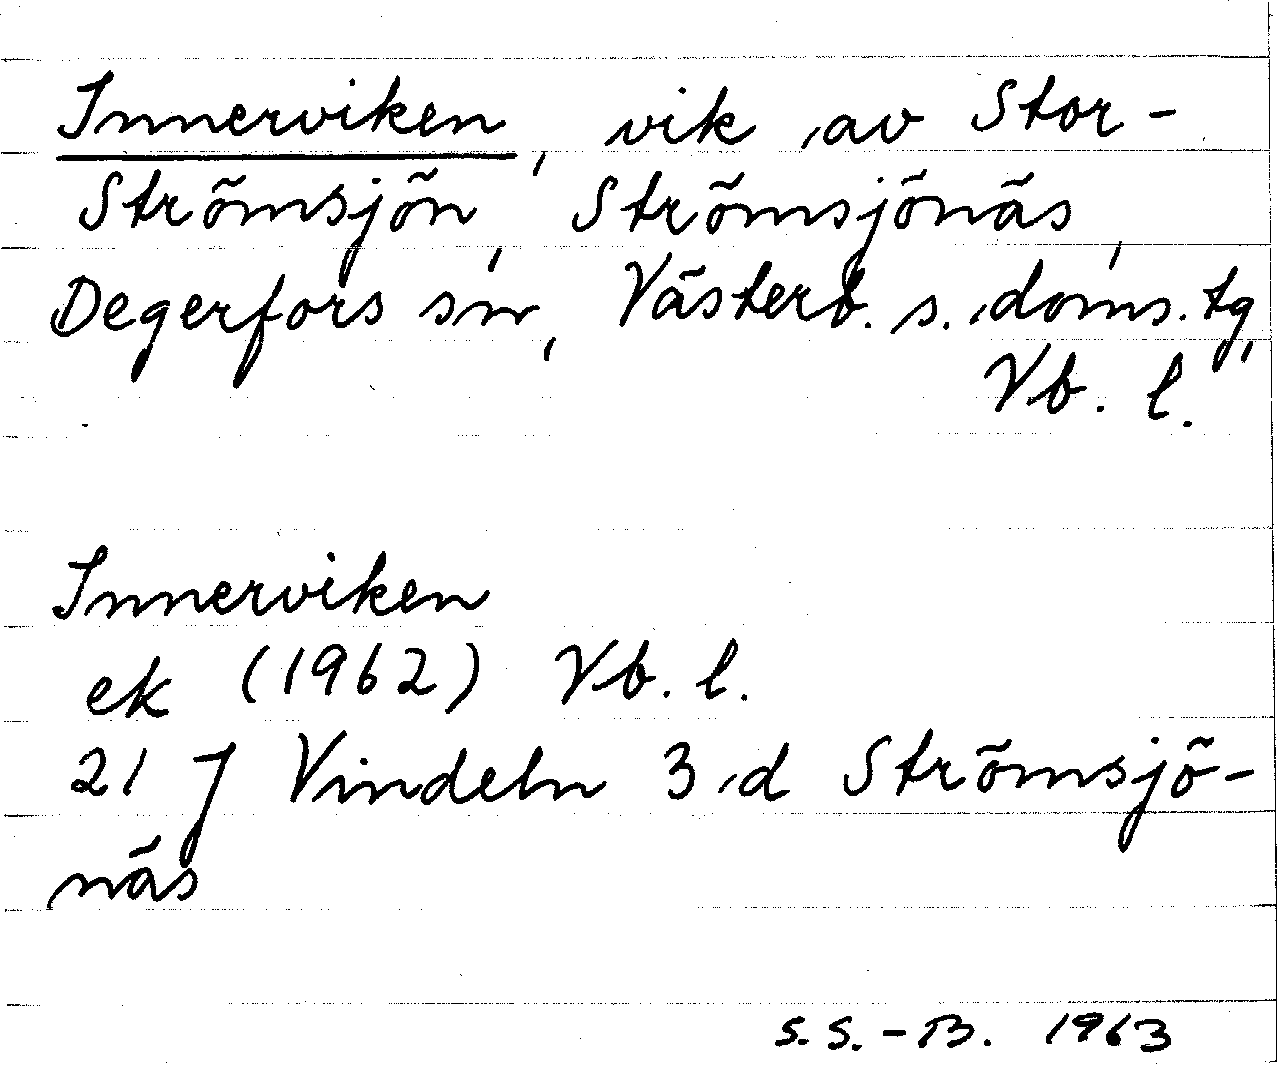 Innerviken, vik av Stor-
Strömsjön, Strömsjönäs,
Degerfors sn, Västerb. s. doms. tg,
Vb. l.
Innerviken
ek (1962) Vb. l.
21 J Vindeln 3 d Strömsjö-
näs
S.S.-B. 1963